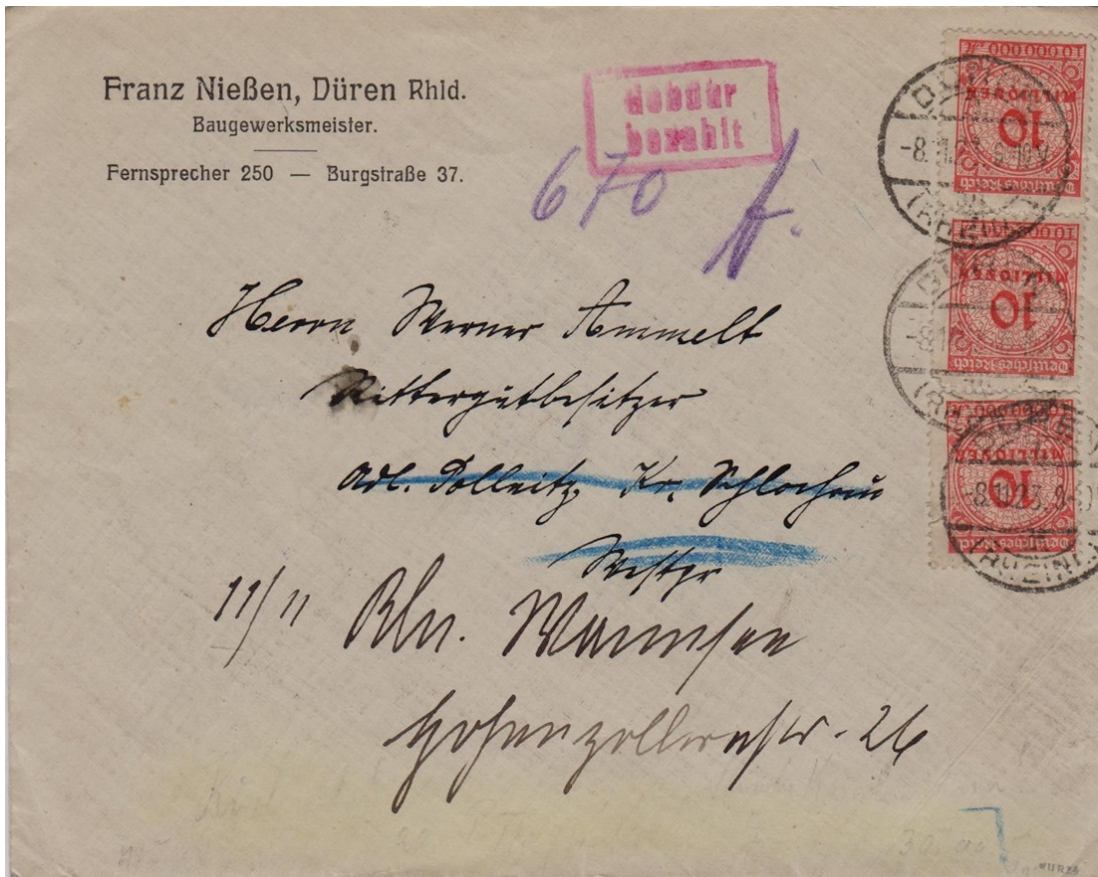 Franz Nießen, Düren Rhld.
Baugewerksmeister.
Fernsprecher 250 — Burgstraße 37.
Gebühr
bezahlt
670
Herrn Werner Ammelt
Rittergutbesitzer
Adl. Kr. Schlochau
Westpr
11/11 Bln. Wannsee
Hohenzollernstr. 26
10 000 000
10
MILLIONEN
Deutsches Reich
-8.11.23.
10 000 000
10
MILLIONEN
Deutsches Reich
10 000 000
10
MILLIONEN
Deutsches Reich
-8.11.23. 8-
(RHEINL)
WURZ